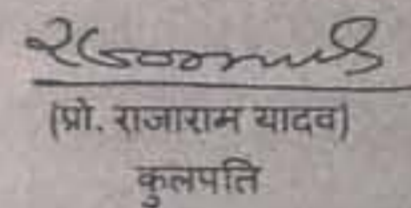 (प्रो. राजाराम यादव)
कुलपति